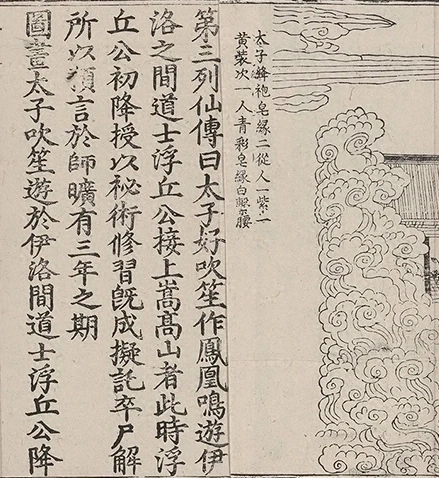 太子絳袍皂緣二從人一紫一
黄裝次一人青彩皂緣白腰
第三列仙傳曰太子好吹笙作鳳凰鳴遊伊
洛之間道士浮丘公接上嵩髙山者此時浮
丘公初降授以祕術修習旣成擬託卒尸解
所以預言於師曠有三年之期
圖畫太子吹笙遊於伊洛間道士浮丘公降